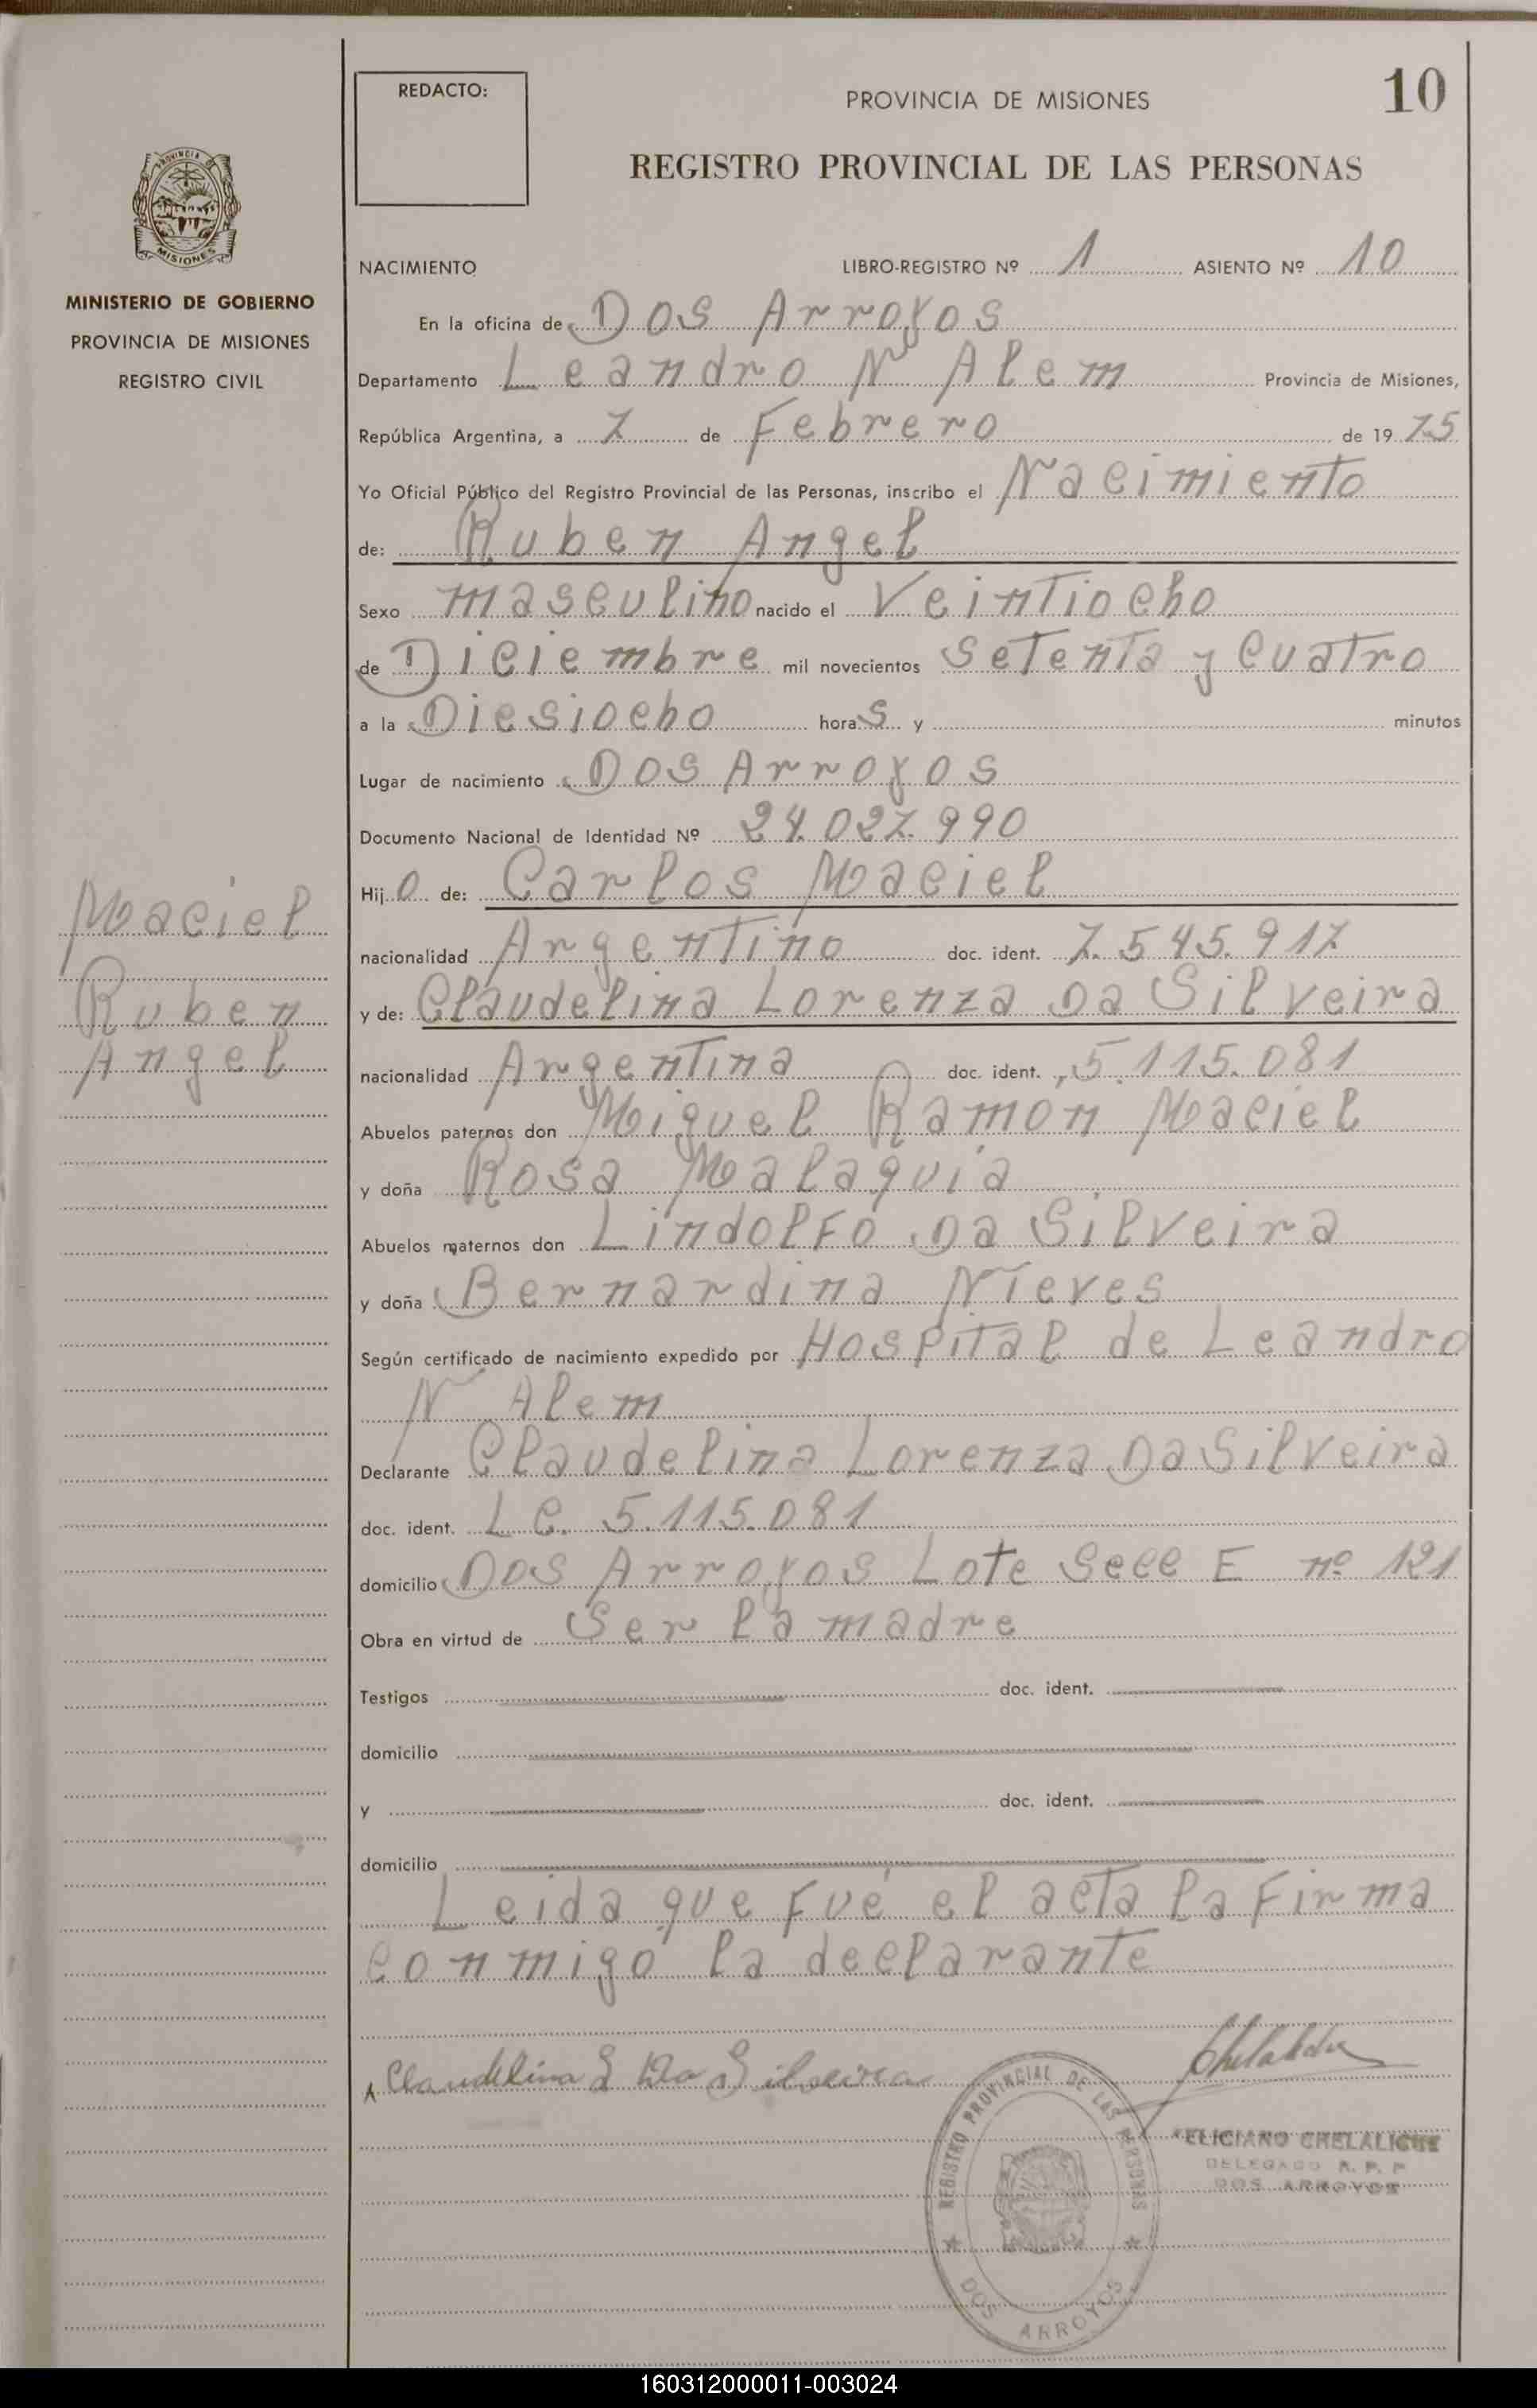 REDACTO:
PROVINCIA DE MISIONES
10
REGISTRO PROVINCIAL DE LAS PERSONAS
PROVINCIA DE
MISIONES
MINISTERIO DE GOBIERNO
PROVINCIA DE MISIONES
REGISTRO CIVIL
NACIMIENTO LIBRO-REGISTRO Nº 1 ASIENTO Nº 10
En la oficina de Dos Arroyos
Departamento Leandro N Alem Provincia de Misiones,
República Argentina, a 7 de Febrero de 19 75
Yo Oficial Público del Registro Provincial de las Personas, inscribo el Nacimiento
de: Ruben Angel
Sexo masculino nacido el Veintiocho
de Diciembre mil novecientos setenta y cuatro
a la Diesiocho horas y minutos
Lugar de nacimiento Dos Arroyos
Documento Nacional de Identidad Nº 24.027.990
Hijo de: Carlos Maciel
nacionalidad Argentino doc. ident. 7.545.917
y de: Claudelina Lorenza Da Silveira
nacionalidad Argentina doc. ident. 5.115.081
Abuelos paternos don Miguel Ramón Maciel
y doña Rosa Malaquia
Abuelos maternos don Lindolfo Da Silveira
y doña Bernardina Nieves
Según certificado de nacimiento expedido por Hospital de Leandro
N Alem
Declarante Claudelina Lorenza Da Silveira
doc. ident. L.C. 5.115.081
domicilio Dos Arroyos Lote Secc E nº 121
Obra en virtud de Ser la madre
Testigos doc. ident.
domicilio
y doc. ident.
domicilio
Leida que fué el acta la firma
conmigo la declarante
Maciel
Ruben
Angel
Claudelina L Da Silveira
REGISTRO PROVINCIAL DE LAS PERSONAS
DOS ARROYOS
FELICIANO CHELALICHE
DELEGADO R. P. P
DOS ARROYOS
160312000011-003024